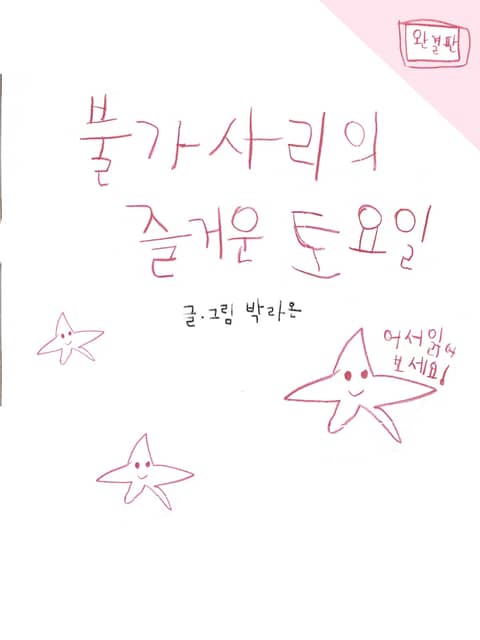 완결판
불가사리의
즐거운 토요일
글.그림 박라온
어서읽어
보세요!